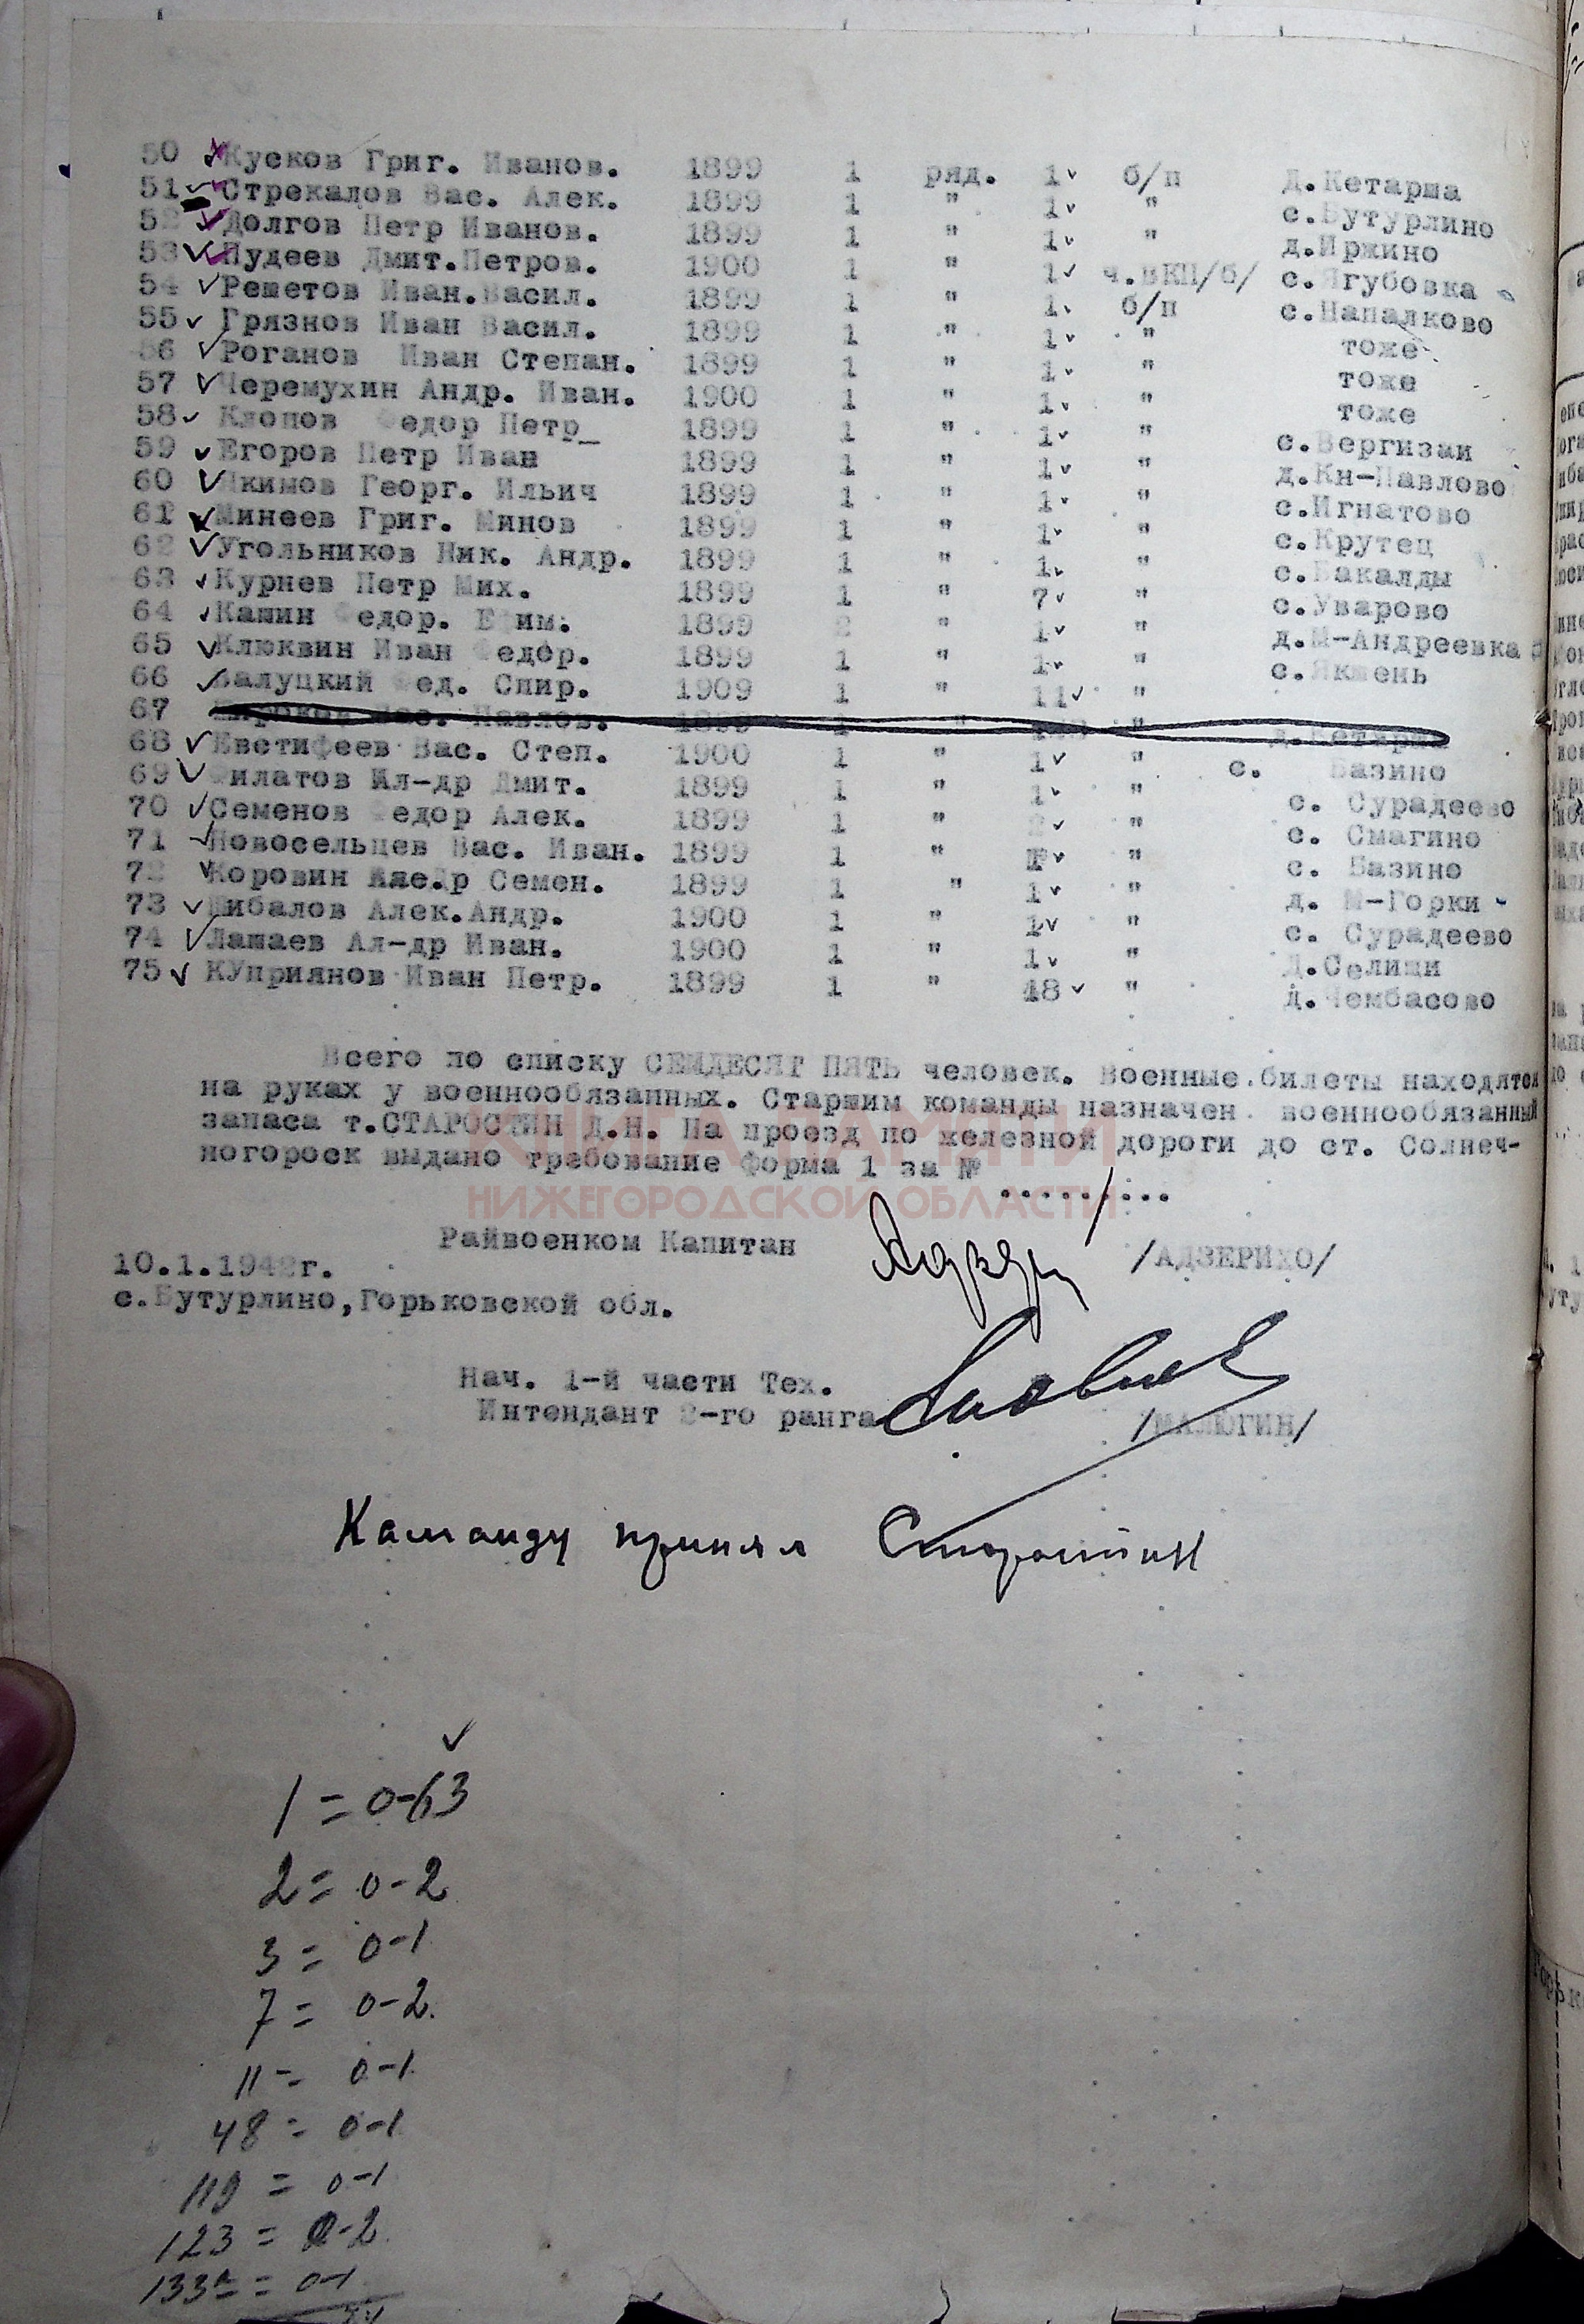 50 Кусков Григ. Иванов. 1899 1 ряд. 1 б/п д.Кетарша
51 Стрекалов Вас. Алек. 1899 1 " 1 " с.Бутурлино
52 Долгов Петр Иванов. 1899 1 " 1 " д.Иржино
53 Пудеев Дмит.Петров. 1900 1 " 1 ч.ВКП/б/ с.Ягубовка
54 Решетов Иван.Васил. 1899 1 " 1 б/п с.Напалково
55 Грязнов Иван Васил. 1899 1 " 1 " тоже
56 Роганов Иван Степан. 1899 1 " 1 " тоже
57 Черемухин Андр. Иван. 1900 1 " 1 " тоже
58 Клопов Федор Петр_ 1899 1 " 1 " с.Вергизаи
59 Егоров Петр Иван 1899 1 " 1 " д.Кн-Павлово
60 Якимов Георг. Ильич 1899 1 " 1 " с.Игнатово
61 Минеев Григ. Минов 1899 1 " 1 " с.Крутец
62 Угольников Ник. Андр. 1899 1 " 1 " с.Бакалды
63 Курнев Петр Мих. 1899 1 " 7 " с.Уварово
64 Кашин Федор. Ефим. 1899 2 " 1 " д.М-Андреевка
65 Клюквин Иван Федор. 1899 1 " 1 " с.Якшень
66 Валуцкий Фед. Спир. 1909 1 " 11 "
67 Вас. Павлов. 1899 1 " " д.Кетарша
68 Евстифеев Вас. Степ. 1900 1 " 1 " с. Базино
69 Филатов Ал-др Дмит. 1899 1 " 1 " с. Сурадеево
70 Семенов Федор Алек. 1899 1 " 2 " с. Смагино
71 Новосельцев Вас. Иван. 1899 1 " 1 " с. Базино
72 Коровин Семен. 1899 1 " 1 " д. М-Горки
73 Шибалов Алек.Андр. 1900 1 " 1 " с. Сурадеево
74 Лашаев Ал-др Иван. 1900 1 " 1 " Д.Селищи
75 КУприянов Иван Петр. 1899 1 " 48 " д.Чембасово
Всего по списку СЕМДЕСЯТ ПЯТЬ человек. Военные билеты находятся
на руках у военнообязанных. Старшим команды назначен военнообязанный
запаса т.СТАРОСТИН Д.Н. На проезд по железной дороги до ст. Солнеч-
ногороск выдано требование форма 1 за №
КНИГА ПАМЯТИ
НИЖЕГОРОДСКОЙ ОБЛАСТИ
Райвоенком Капитан /АДЗЕРИХО/
10.1.1942г.
с.Бутурлино,Горьковской обл.
Нач. 1-й части Тех.
Интендант 2-го ранга /МАЛЮГИН/
Каманду принял Старостин
1 = 0-63
2 = 0-2
3 = 0-1
7 = 0-2.
11 = 0-1
48 = 0-1
119 = 0-1
123 = 0-2
133а = 0-1